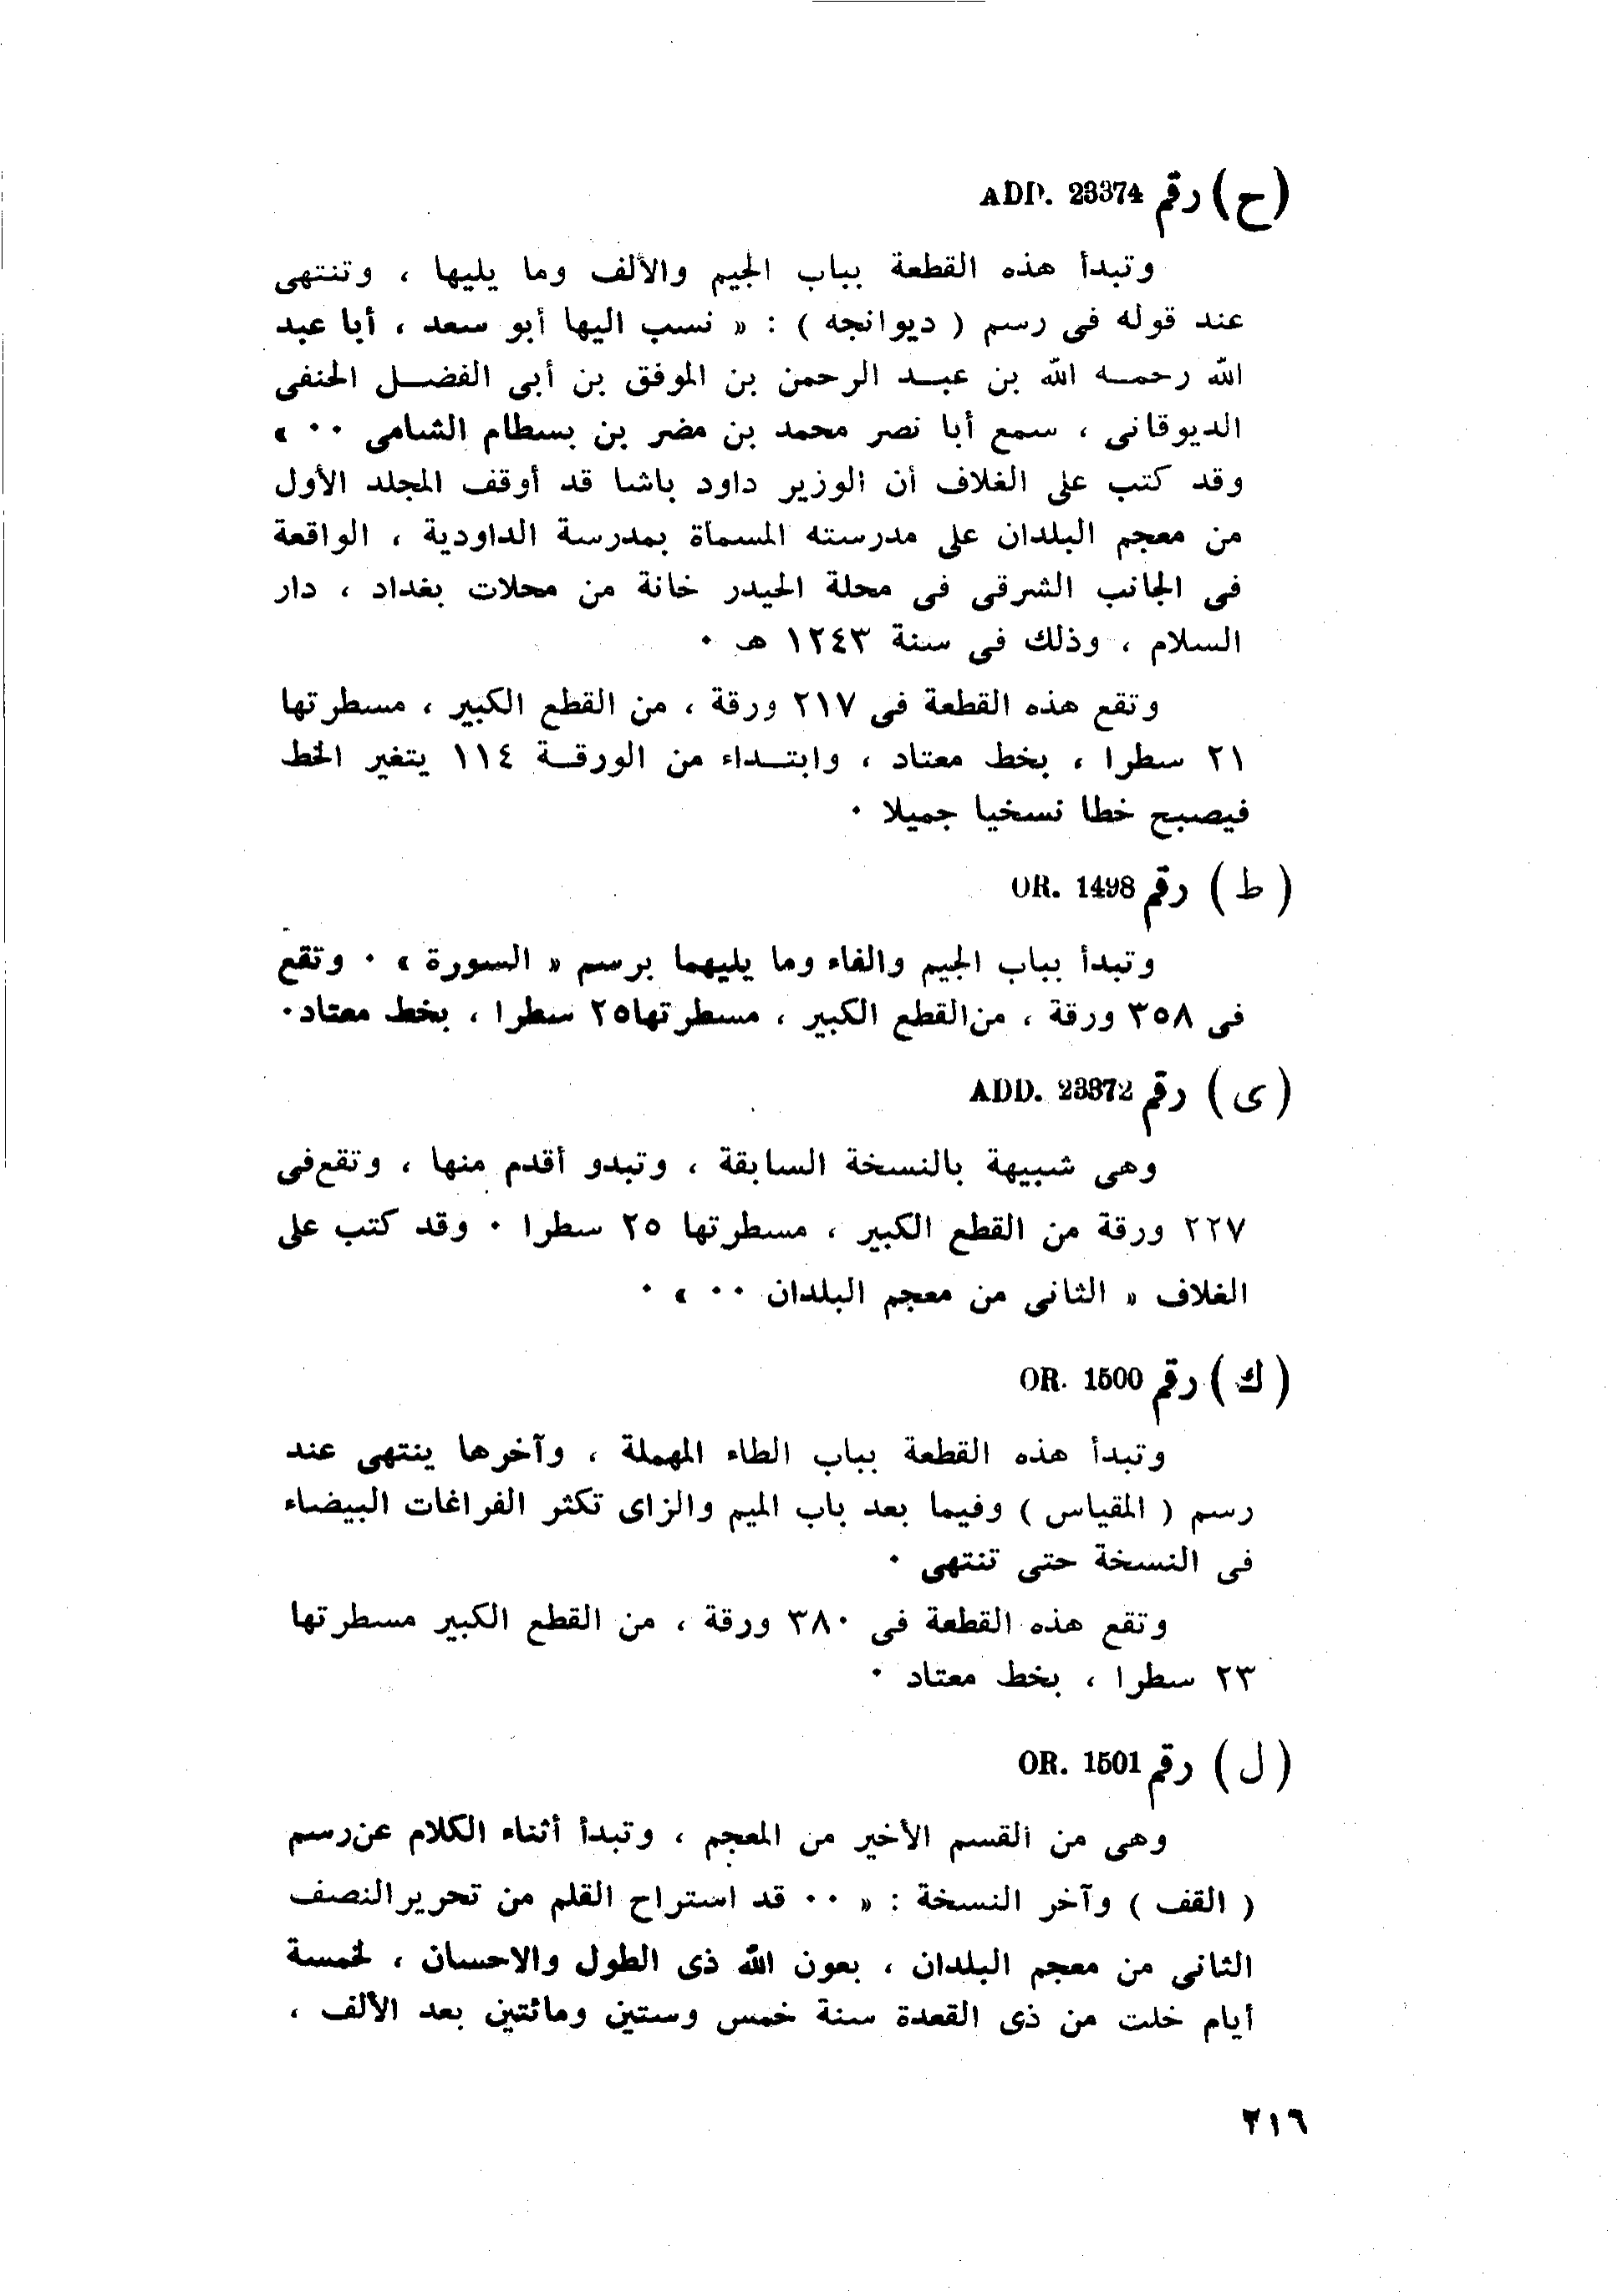 (ح) رقم ADD. 23374
وتبدأ هذه القطعة بباب الجيم والألف وما يليها ، وتنتهى
عند قوله فى رسم ( ديوانجه ) : « نسب اليها أبو سعد ، أبا عبد
الله رحمه الله بن عبد الرحمن بن الموفق بن أبى الفضل الحنفى
الديوقانى ، سمع أبا نصر محمد بن مضر بن بسطام الشامى ٠٠ »
وقد كتب على الغلاف أن الوزير داود باشا قد أوقف المجلد الأول
من معجم البلدان على مدرسته المسماة بمدرسة الداودية ، الواقعة
فى الجانب الشرقى فى محلة الحيدر خانة من محلات بغداد ، دار
السلام ، وذلك فى سنة ١٢٤٣ هـ ٠
وتقع هذه القطعة فى ٢١٧ ورقة ، من القطع الكبير ، مسطرتها
٢١ سطرا ، بخط معتاد ، وابتداء من الورقة ١١٤ يتغير الخط
فيصبح خطا نسخيا جميلا ٠
( ط ) رقم OR. 1498
وتبدأ بباب الجيم والفاء وما يليهما برسم « السورة » ٠ وتقع
فى ٣٥٨ ورقة ، من القطع الكبير ، مسطرتها ٢٥ سطرا ، بخط معتاد٠
( ى ) رقم ADD. 23372
وهى شبيهة بالنسخة السابقة ، وتبدو أقدم منها ، وتقع فى
٢٢٧ ورقة من القطع الكبير ، مسطرتها ٢٥ سطرا ٠ وقد كتب على
الغلاف « الثانى من معجم البلدان ٠٠ » ٠
( ك ) رقم OR. 1500
وتبدأ هذه القطعة بباب الطاء المهملة ، وآخرها ينتهى عند
رسم ( المقياس ) وفيما بعد باب الميم والزاى تكثر الفراغات البيضاء
فى النسخة حتى تنتهى ٠
وتقع هذه القطعة فى ٣٨٠ ورقة ، من القطع الكبير مسطرتها
٢٣ سطرا ، بخط معتاد ٠
( ل ) رقم OR. 1501
وهى من القسم الأخير من المعجم ، وتبدأ أثناء الكلام عن رسم
( القف ) وآخر النسخة : « ٠٠ قد استراح القلم من تحرير النصف
الثانى من معجم البلدان ، بعون الله ذى الطول والاحسان ، لخمسة
أيام خلت من ذى القعدة سنة خمس وستين ومائتين بعد الألف ،
٢١٦